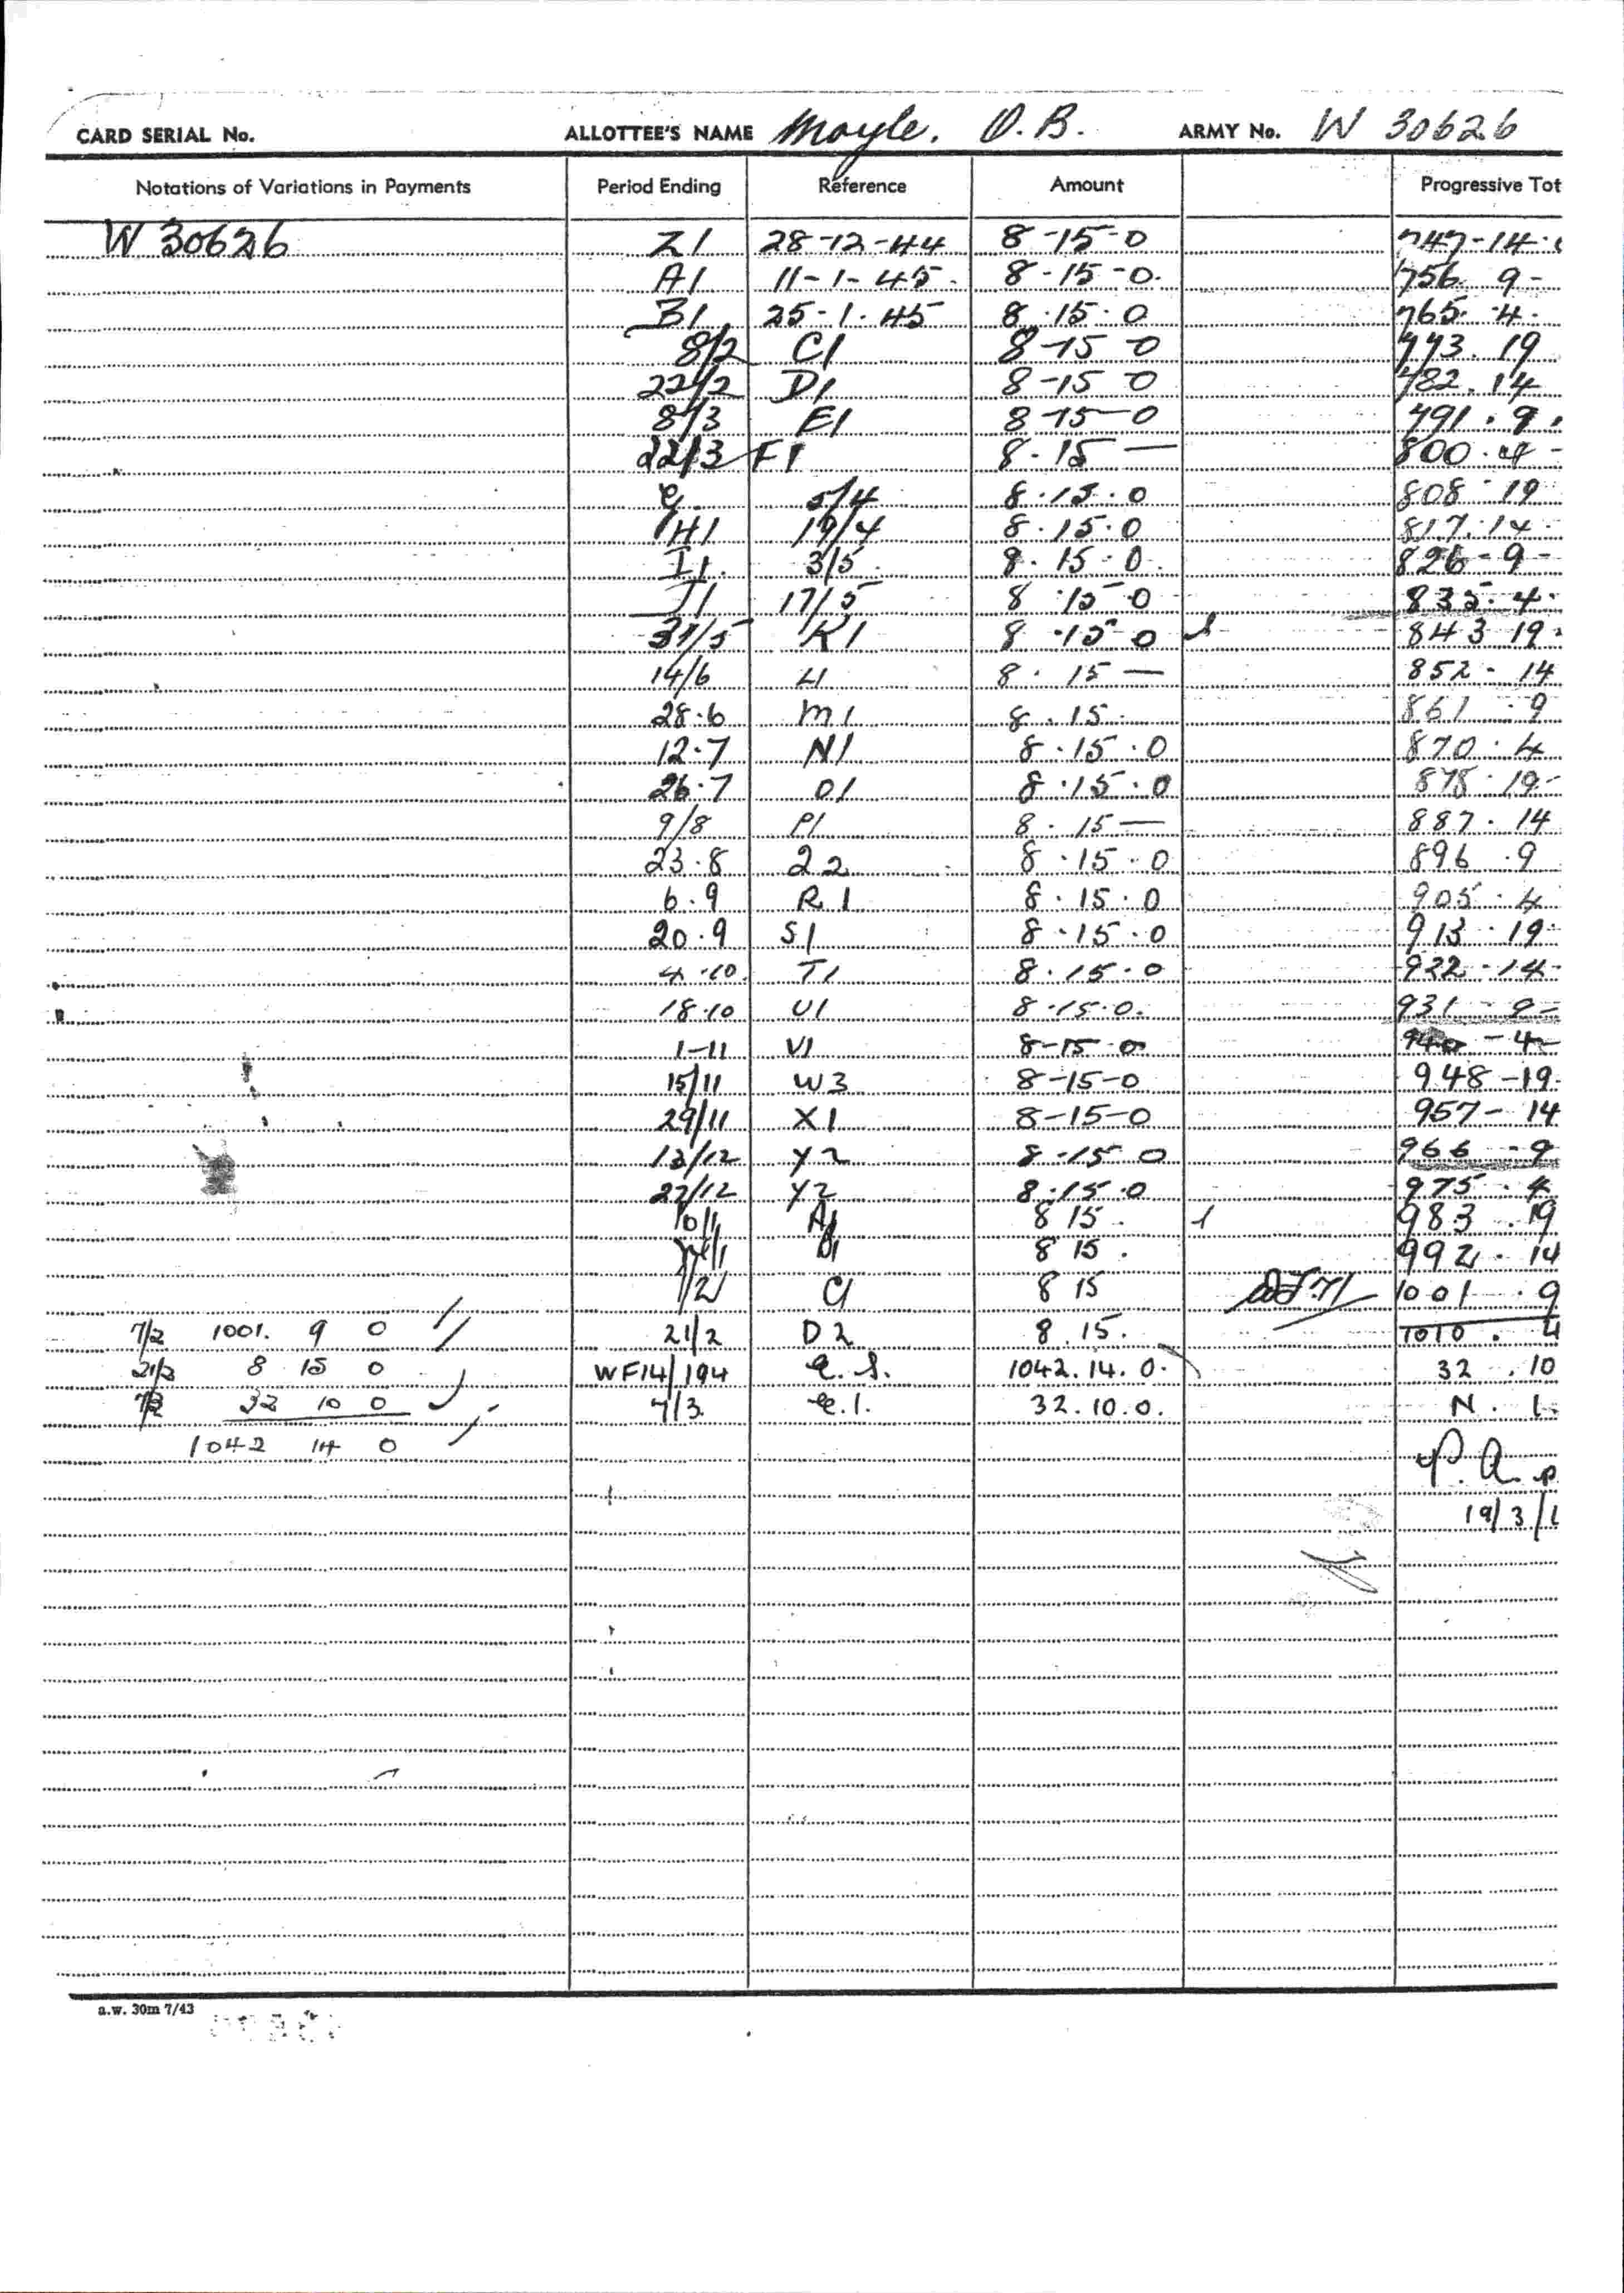 CARD SERIAL No. ALLOTTEE'S NAME Moyle. O. B. ARMY No. W 30626
Notations of Variations in Payments Period Ending Reference Amount Progressive Tot
W 30626 Z1 28-12-44 8-15-0 747-14
A1 11-1-45. 8-15-0. 756 9-
B1 25-1.45 8.15.0 765.4.
8/2 C1 8-15 0 773.19
22/2 D1 8-15 0 782.14
8/3 E1 8 15-0 791.9.
22/3 F1 8.15 — 800.4-
5/4 8.15.0 808 19
H1 19/4 8.15.0 817.14.
I1. 3/5. 8.15.0. 826-9-
J1 17/5 8.15 0 835.4.
31/5 K1 8.15 0 843 19.
14/6 L1 8.15 — 852-14
28.6 M1 8.15. 861.9
12.7 N1 8.15.0 870.4
26.7 O1 8.15.0 878.19-
9/8 P1 8.15 — 887.14
23.8 22 8.15.0 896.9
6.9 R1 8.15.0 905.4
20.9 S1 8.15.0 913.19
4.10. T1 8.15.0 922-14-
18.10 U1 8.15.0. 931-9-
1-11 V1 8-15-0 940-4-
15/11 W3 8-15-0 948-19.
29/11 X1 8-15-0 957-14
13/12 Y2 8-15 0 966-9
27/12 Y2 8.15.0 975.4
10/1 A1 8 15. 983.19
8 15. 992.14
7/2 C1 8 15 1001.9
7/2 1001. 9 0 21/2 D2 8.15. 1010.4
21/2 8 15 0 WF14/194 e.s. 1042.14.0. 32.10
32 10 0 7/3 e.1. 32.10.0. N.
1042 14 0
P.A.
19/3/
a.w. 30m 7/43